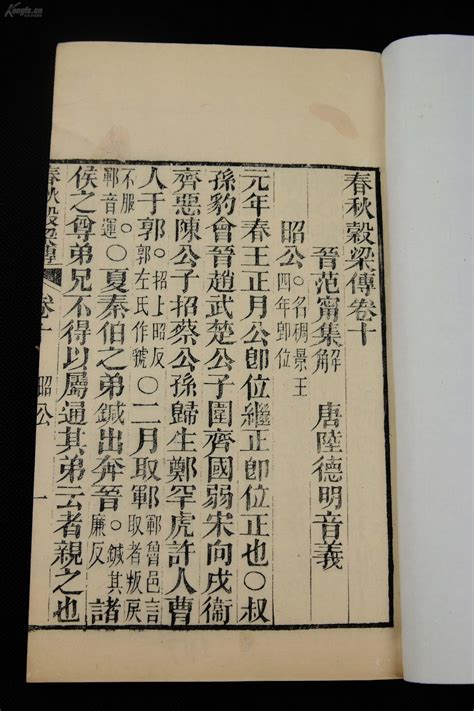 Kongfz.cn
春秋穀梁傳卷十
晉范甯集解 唐陸德明音義
昭公○名稠景王四年卽位
元年春王正月公卽位繼正卽位正也○叔
孫豹會晉趙武楚公子圍齊國弱宋向戌衞
齊惡陳公子招蔡公孫歸生鄭罕虎許人曹
人于郭○招上昭反郭左氏作虢○二月取鄆鄆魯邑言取者叛戾
不服○鄆音運○夏秦伯之弟鍼出奔晉○鍼其廉反諸
侯之尊弟兄不得以屬通其弟云者親之也
春秋穀梁傳 卷十 昭公 一